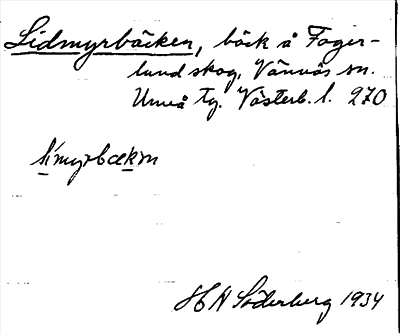 Lidmyrbäcken, bäck å Fager-
lund skog, Vännäs sn.
Umeå tg. Västerb. l. 270
li´myrbækm
H A Söderberg 1934